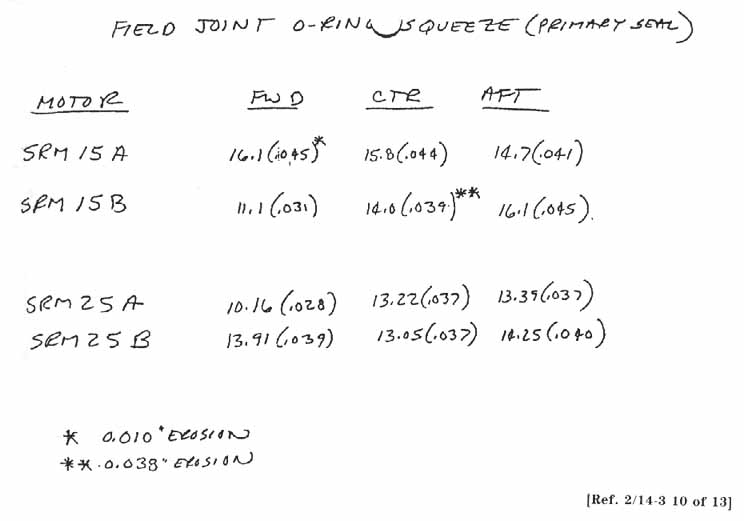 FIELD JOINT O-RING SQUEEZE (PRIMARY SEAL)
MOTOR FWD CTR AFT
SRM 15 A 16.1 (.045)* 15.8 (.044) 14.7 (.041)
SRM 15 B 11.1 (.031) 14.0 (.039)** 16.1 (.045).
SRM 25 A 10.16 (.028) 13.22 (.037) 13.39 (.037)
SRM 25 B 13.91 (.039) 13.05 (.037) 14.25 (.040)
* 0.010" EROSION
** 0.038" EROSION
[Ref. 2/14-3 10 of 13]